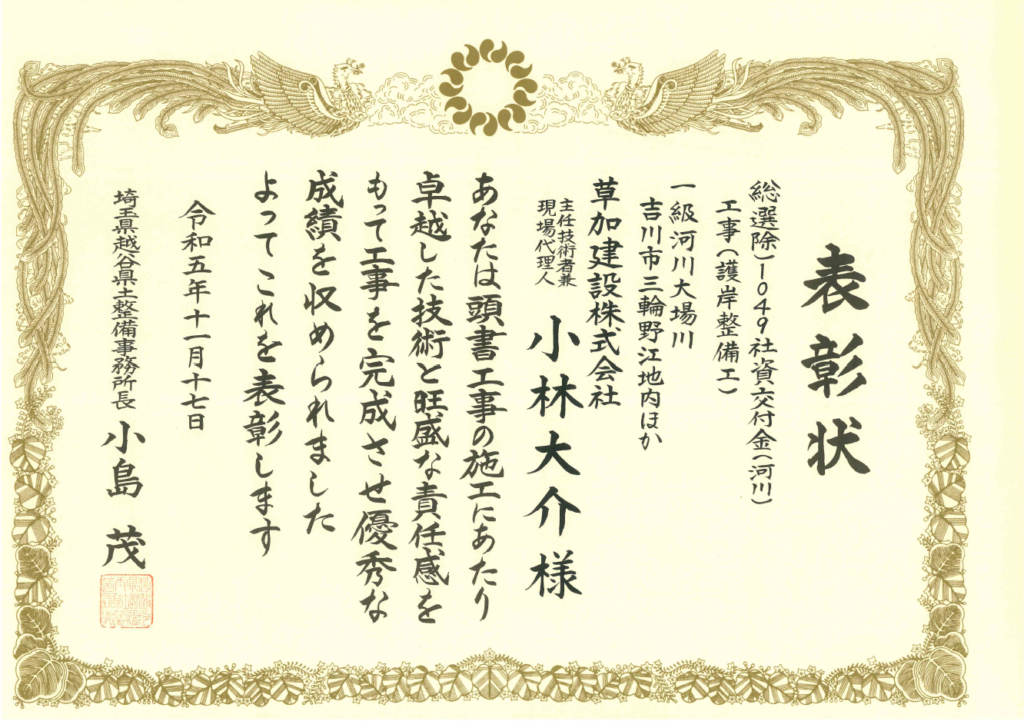 表彰状
総選除)一〇四9社資交付金(河川)
工事(護岸整備工)
一級河川大場川
吉川市三輪野江地内ほか
草加建設株式会社
主任技術者兼
現場代理人
小林大介様
あなたは頭書工事の施工にあたり
卓越した技術と旺盛な責任感を
もって工事を完成させ優秀な
成績を収められました
よってこれを表彰します
令和五年十一月十七日
埼玉県越谷県土整備事務所長
小島茂